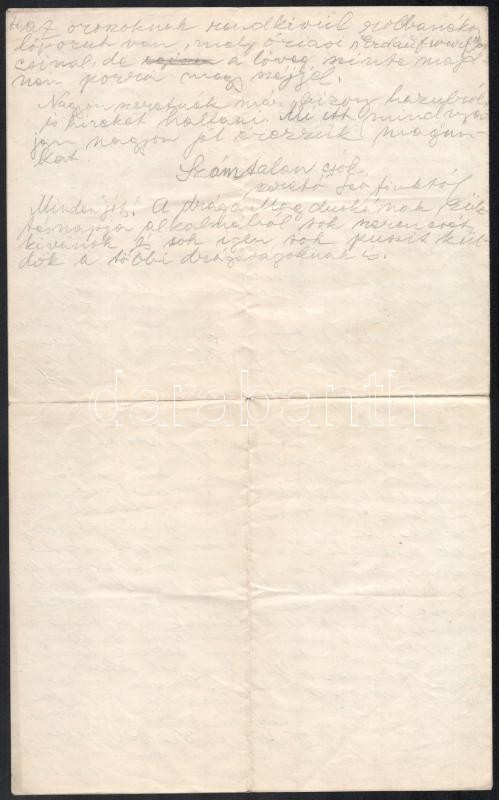 az oroszoknak rendkívül robbanékony
lövegük van, mely óriási "Erdaufwurf"ot
csinál, de a löveg szinte majd-
nem porrá megy széjjel.
Nagyon szeretnék már bizony hazulról
is híreket hallani. Mi itt mindnyá-
jan nagyon jól érezzük magun-
kat.
Számtalan csók
szerető fiuktól
Minden jót! A drága Magduskának szüle-
tésnapja alkalmából sok szerencsét
kívánok és sok igen sok puszit kül-
dök a többi drágaságoknak is.
darabanth